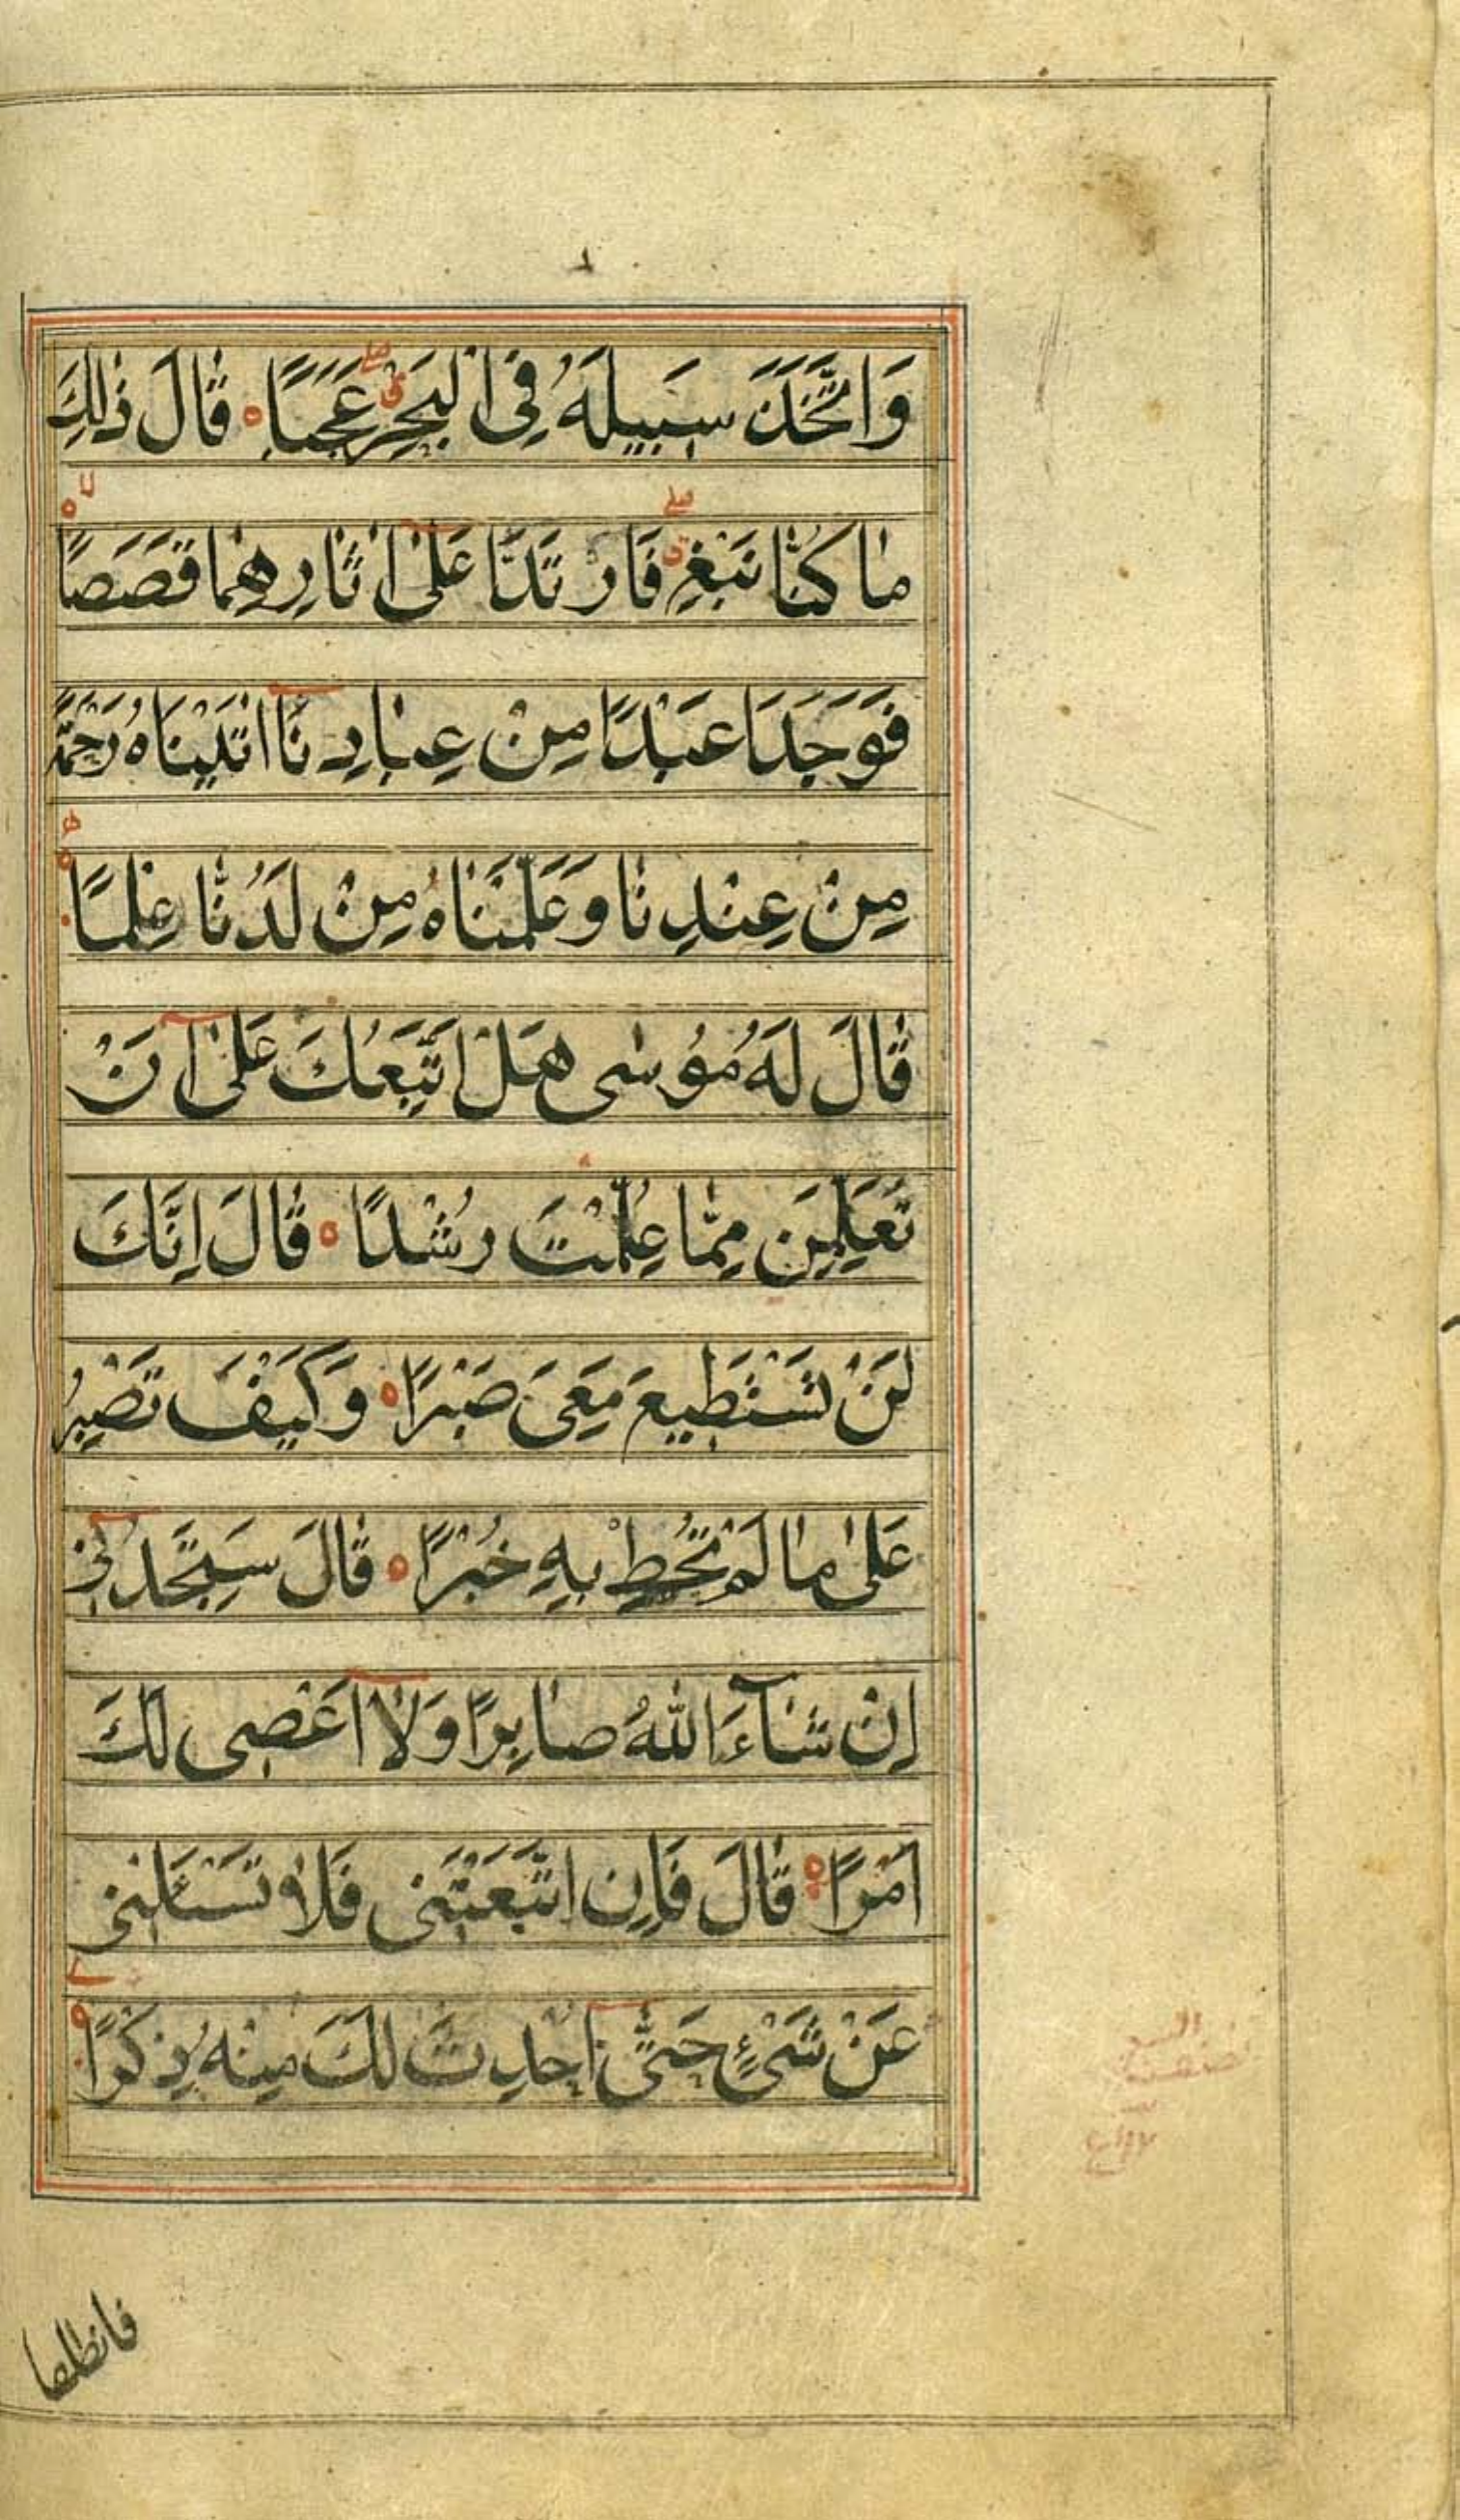 وَاتَّخَذَ سَبِيلَهُ فِي الْبَحْرِ عَجَبًا قَالَ ذٰلِكَ
مَا كُنَّا نَبْغِ فَارْتَدَّا عَلٰى اٰثَارِهِمَا قَصَصًا
فَوَجَدَا عَبْدًا مِنْ عِبَادِنَا اٰتَيْنَاهُ رَحْمَةً
مِنْ عِنْدِنَا وَعَلَّمْنَاهُ مِنْ لَدُنَّا عِلْمًا
قَالَ لَهُ مُوْسٰى هَلْ اَتَّبِعُكَ عَلٰى اَنْ
تُعَلِّمَنِ مِمَّا عُلِّمْتَ رُشْدًا قَالَ اِنَّكَ
لَنْ تَسْتَطِيعَ مَعِىَ صَبْرًا وَكَيْفَ تَصْبِرُ
عَلٰى مَا لَمْ تُحِطْ بِهِ خُبْرًا قَالَ سَتَجِدُنِي
اِنْ شَآءَ اللهُ صَابِرًا وَلَا اَعْصِى لَكَ
اَمْرًا قَالَ فَاِنِ اتَّبَعْتَنِى فَلَا تَسْئَلْنِى
عَنْ شَىْءٍ حَتّٰى اُحْدِثَ لَكَ مِنْهُ ذِكْرًا
فانطلقا